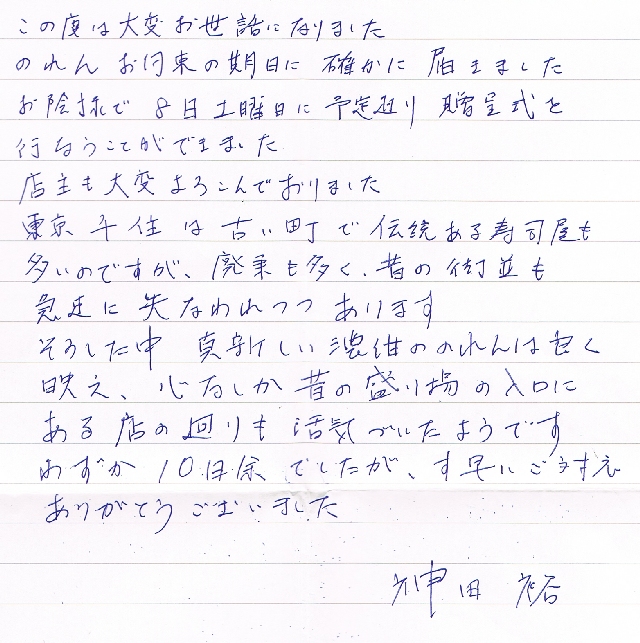 この度は大変お世話になりました
のれん お約束の期日に 確かに 届きました
お陰様で 8日土曜日に 予定通り 贈呈式を
行なうことができました
店主も大変よろこんでおりました
東京 千住 は 古い町で 伝統ある寿司屋も
多いのですが、廃業も多く、昔の街並も
急速に 失なわれつつ あります
そうした中 真新しい濃紺ののれんは良く
映え、心なしか 昔の盛り場の入口に
ある店の廻りも 活気づいたようです
わずか 10日余 でしたが、す早い
ありがとうございました
神田 裕